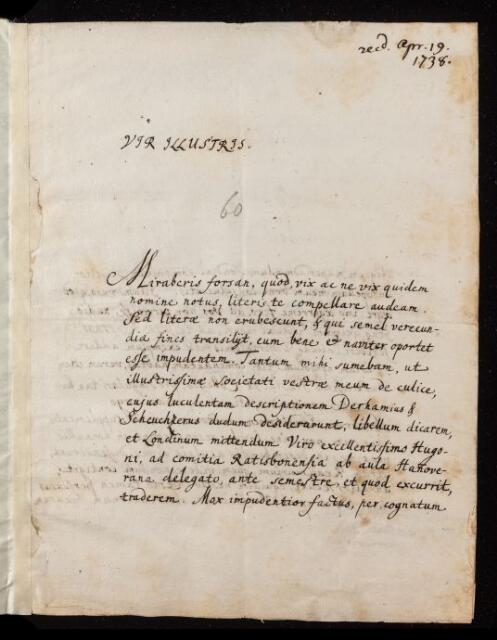 recd. Apr. 19.
1738.
VIR ILLUSTRIS.
60
Miraberis forsan, quod vix ac ne vix quidem
nomine notus, literis te compellare audeam.
Sed literæ non erubescunt, & qui semel verecun-
diæ fines transilyt, eum bene & naviter oportet
esse impudentem. Tantum mihi sumebam, ut
illustrissimæ societati vestræ meum de culice,
cujus luculentam descriptionem Derhamius &
Scheuchzerus dudum desiderarunt, libellum dicarem,
et Londinum mittendum Viro excellentissimo Hugo-
ni, ad comitia Ratisbonensia ab aula Hanove-
rana delegato, ante semestre, et quod excurrit,
traderem. Mox impudentior factus, per cognatum